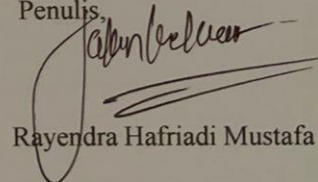 Penulis,
Rayendra Hafriadi Mustafa